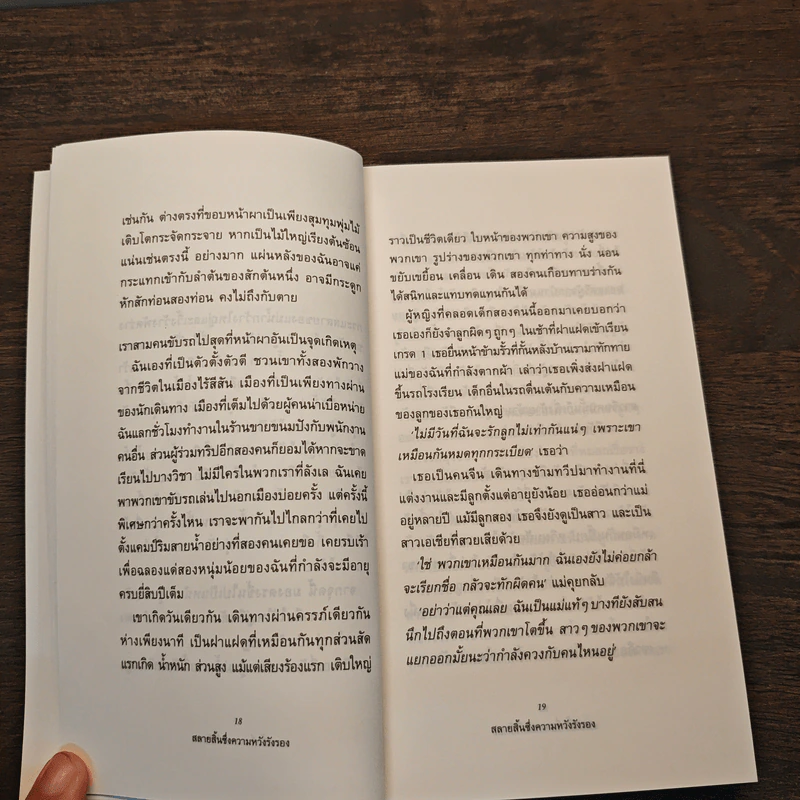 เช่นกัน ต่างตรงที่ขอบหน้าผาเป็นเพียงสุมทุมพุ่มไม้
เติบโตกระจัดกระจาย หากเป็นไม้ใหญ่เรียงต้นซ้อน
แน่นเช่นตรงนี้ อย่างมาก แผ่นหลังของฉันอาจแค่
กระแทกเข้ากับลำต้นของสักต้นหนึ่ง อาจมีกระดูก
หักสักท่อนสองท่อน คงไม่ถึงกับตาย
เราสามคนขับรถไปสุดที่หน้าผาอันเป็นจุดเกิดเหตุ
ฉันเองที่เป็นตัวตั้งตัวตี ชวนเขาทั้งสองพักวาง
จากชีวิตในเมืองไร้สีสัน เมืองที่เป็นเพียงทางผ่าน
ของนักเดินทาง เมืองที่เต็มไปด้วยผู้คนน่าเบื่อหน่าย
ฉันแลกชั่วโมงทำงานในร้านขายขนมปังกับพนักงาน
คนอื่น ส่วนผู้ร่วมทริปอีกสองคนก็ยอมได้หากจะขาด
เรียนไปบางวิชา ไม่มีใครในพวกเราที่ลังเล ฉันเคย
พาพวกเขาขับรถเล่นไปนอกเมืองบ่อยครั้ง แต่ครั้งนี้
พิเศษกว่าครั้งไหน เราจะพากันไปไกลกว่าที่เคยไป
ตั้งแคมป์ริมสายน้ำอย่างที่สองคนเคยขอ เคยรบเร้า
เพื่อฉลองแด่สองหนุ่มน้อยของฉันที่กำลังจะมีอายุ
ครบยี่สิบปีเต็ม
เขาเกิดวันเดียวกัน เดินทางผ่านครรภ์เดียวกัน
ห่างเพียงนาที เป็นฝาแฝดที่เหมือนกันทุกส่วนสัด
แรกเกิด น้ำหนัก ส่วนสูง แม้แต่เสียงร้องแรก เติบใหญ่
18
สลายสิ้นซึ่งความหวังรังรอง
ราวเป็นชีวิตเดียว ใบหน้าของพวกเขา ความสูงของ
พวกเขา รูปร่างของพวกเขา ทุกท่าทาง นั่ง นอน
ขยับเขยื้อน เคลื่อน เดิน สองคนเกือบทาบร่างกัน
ได้สนิทและแทบทดแทนกันได้
ผู้หญิงที่คลอดเด็กสองคนนี้ออกมาเคยบอกว่า
เธอเองก็ยังจำลูกผิดๆ ถูกๆ ในเช้าที่ฝาแฝดเข้าเรียน
เกรด 1 เธอยื่นหน้าข้ามรั้วที่กั้นหลังบ้านเรามาทักทาย
แม่ของฉันที่กำลังตากผ้า เล่าว่าเธอเพิ่งส่งฝาแฝด
ขึ้นรถโรงเรียน เด็กอื่นในรถตื่นเต้นกับความเหมือน
ของลูกของเธอกันใหญ่
'ไม่มีวันที่ฉันจะรักลูกไม่เท่ากันแน่ๆ เพราะเขา
เหมือนกันหมดทุกกระเบียด' เธอว่า
เธอเป็นคนจีน เดินทางข้ามทวีปมาทำงานที่นี่
แต่งงานและมีลูกตั้งแต่อายุยังน้อย เธออ่อนกว่าแม่
อยู่หลายปี แม้มีลูกสอง เธอจึงยังดูเป็นสาว และเป็น
สาวเอเชียที่สวยเสียด้วย
'ใช่ พวกเขาเหมือนกันมาก ฉันเองยังไม่ค่อยกล้า
จะเรียกชื่อ กลัวจะทักผิดคน' แม่คุยกลับ
'อย่าว่าแต่คุณเลย ฉันเป็นแม่แท้ๆ บางทียังสับสน
นึกไปถึงตอนที่พวกเขาโตขึ้น สาวๆ ของพวกเขาจะ
แยกออกมั้ยนะว่ากำลังควงกับคนไหนอยู่'
19
สลายสิ้นซึ่งความหวังรังรอง